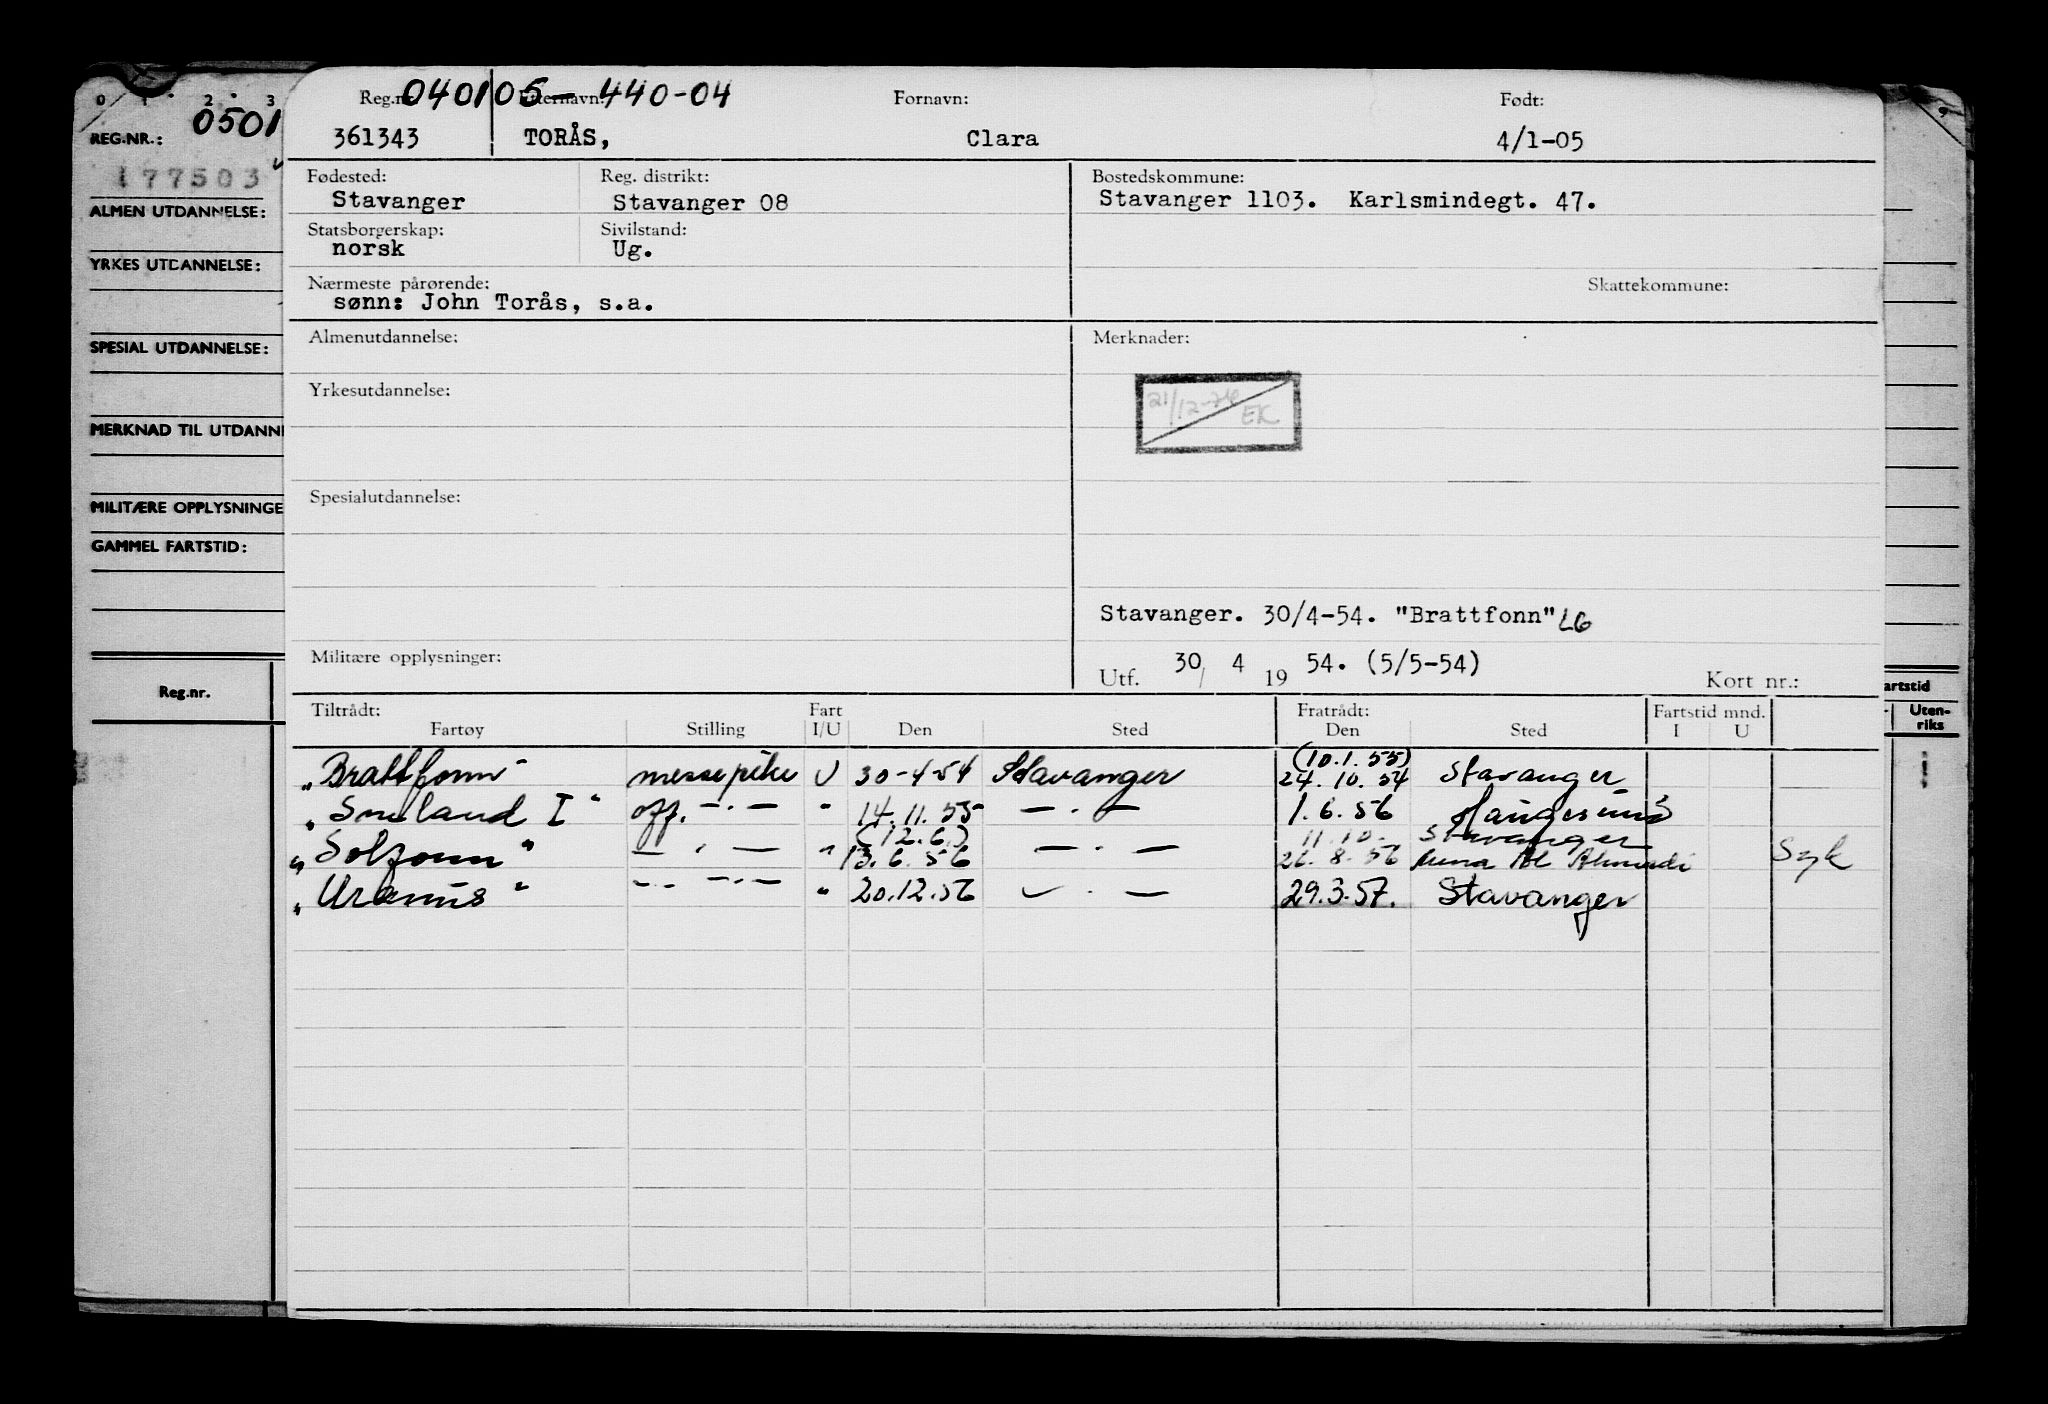 0 1 2 3
REG.NR.: 0501
177503
ALMEN UTDANNELSE:
YRKES UTDANNELSE:
SPESIAL UTDANNELSE:
MERKNAD TIL UTDANN
MILITÆRE OPPLYSNINGE
GAMMEL FARTSTID:
Reg.nr.
040105-440-04
Reg.nr. Etternavn: Fornavn: Født:
361343 TORÅS, Clara 4/1-05
Fødested: Reg. distrikt: Bostedskommune:
Stavanger Stavanger 08 Stavanger 1103. Karlsmindegt. 47.
Statsborgerskap: Sivilstand:
norsk Ug.
Nærmeste pårørende: Skattekommune:
sønn: John Torås, s.a.
Almenutdannelse: Merknader:
Yrkesutdannelse:
21/12-76 EK
Spesialutdannelse:
Stavanger. 30/4-54. "Brattfonn" LG
Militære opplysninger:
Utf. 30/ 4 19 54. (5/5-54) Kort nr.:
Tiltrådt: Fart Fratrådt: Fartstid mnd.
Fartøy Stilling I/U Den Sted Den Sted I U
(10.1.55)
"Brattfonn" messepike U 30-4-54 Stavanger 24.10.54 Stavanger
"Smeland I" off. —·— " 14.11.55 —·— 1.6.56 Haugesund
(12.6.) 11.10. Stavanger
"Solfonn" —·— " 13.6.56 —·— 26.8.56 Mena Al Ahmadi Syk
"Uranus" —·· —·— " 20.12.56 —·— 29.3.57. Stavanger
9
artstid
Uten-
riks